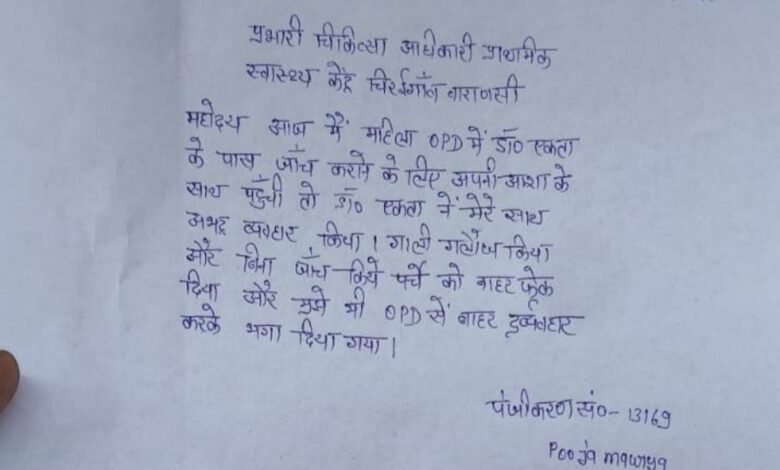 प्रभारी चिकित्सा अधिकारी प्राथमिक
स्वास्थ्य केंद्र चिरईगाँव वाराणसी
महोदय आज मैं महिला OPD में डॉ० एकता
के पास जाँच कराने के लिए अपनी आशा के
साथ पहुँची तो डॉ० एकता नें मेरे साथ
अभद्र व्यवहार किया। गाली गलौज किया
और बिना जाँच किये पर्चे को बाहर फेक
दिया और मुझे भी OPD सें बाहर दुर्व्यवहार
करके भगा दिया गया।
पंजीकरण सं०- 13169
Pooja maurya